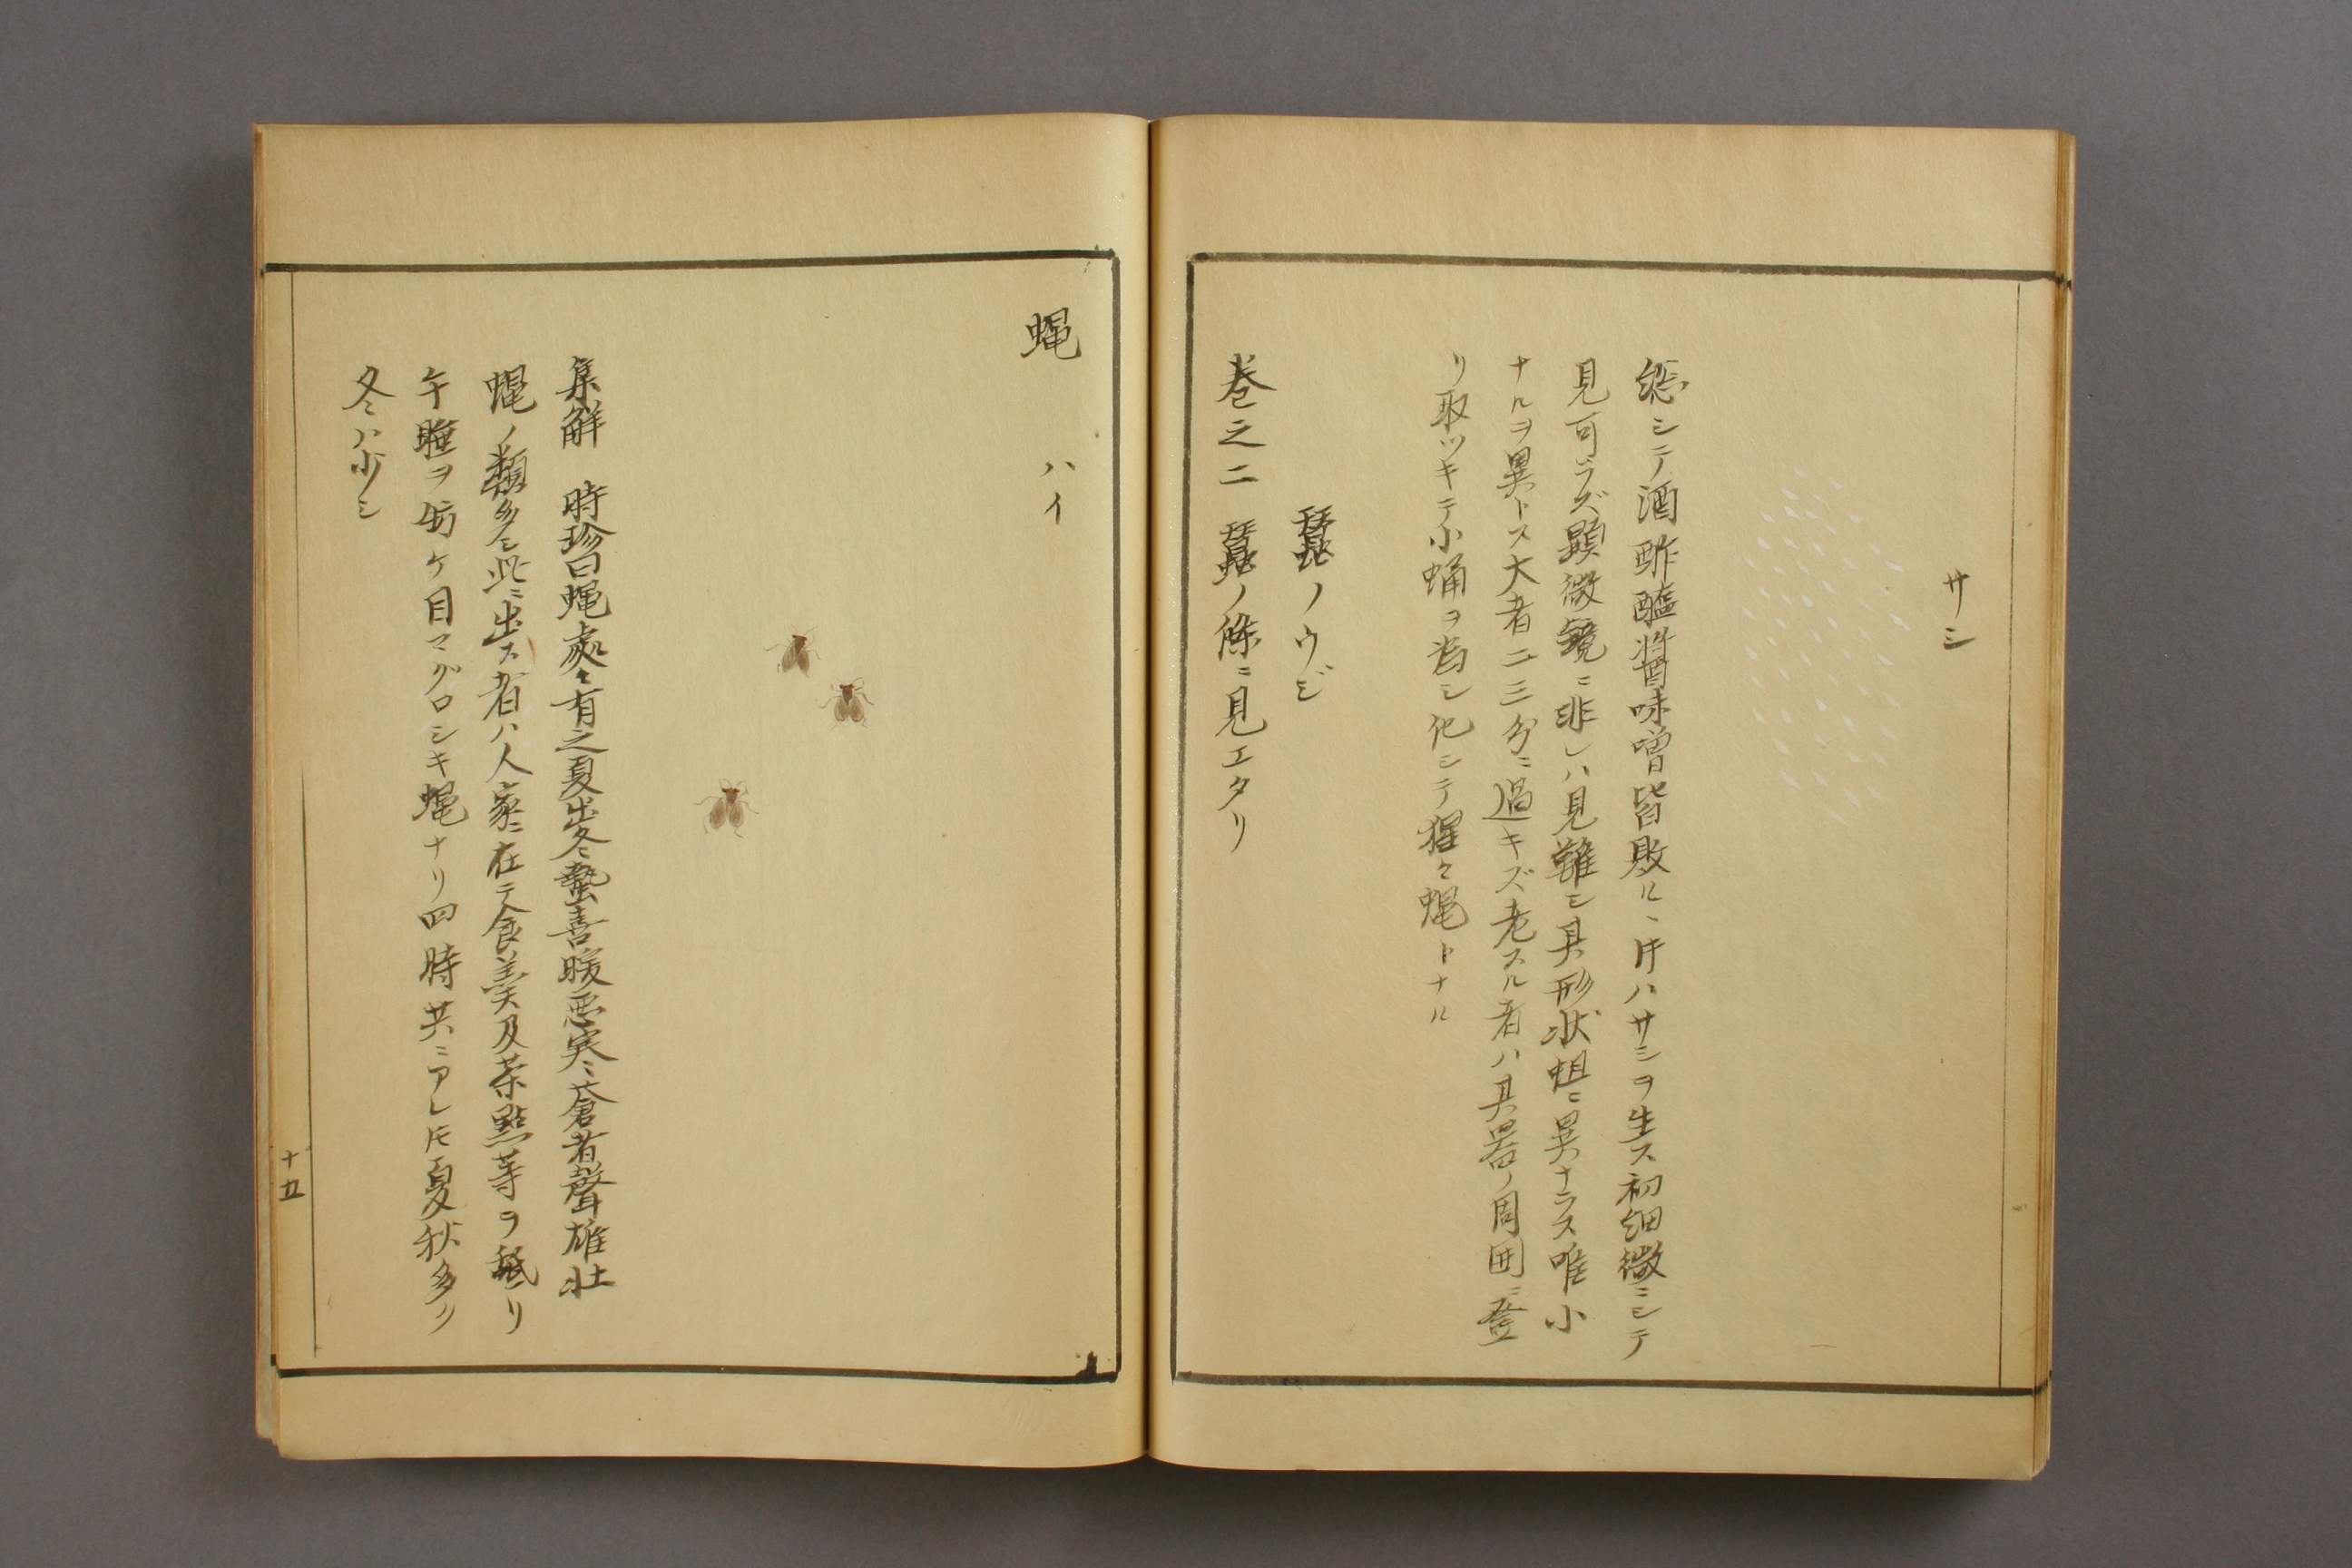 サシ
総シテ酒酢醢醤味噌皆敗ルヽ片ハサシヲ生ス初細微ニシテ
見可ラズ顕微鏡ニ非レハ見難シ其形状蛆ニ異ナラス唯小
ナルヲ異トス大者二三分ニ過キズ老スル者ハ其器ノ周囲ニ登
リ取ツキテ小蛹ヲ為シ化シテ猩々蝿トナル
蠶ノウジ
巻之二 蠶ノ條ニ見エタリ
蝿
ハイ
集解 時珍曰蝿處々有之夏出冬蟄喜暖悪寒蒼者聲雄壮
蝿ノ類多シ此ニ出ス者ハ人家ニ在テ食羹及茶點等ヲ舐リ
午睡ヲ妨ケ目マグロシキ蝿ナリ四時共ニアレ𪜈夏秋多ク
冬ハ少シ
十五